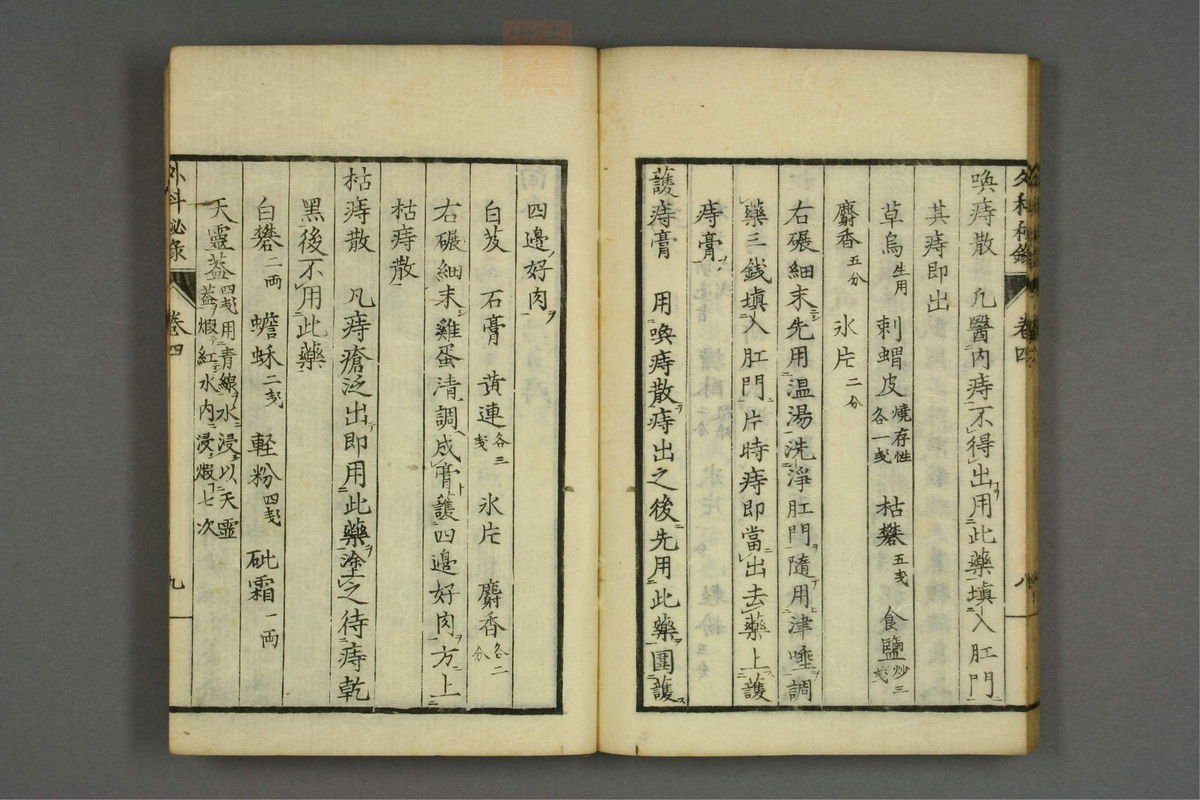 喚痔散 凡醫内痔不得出用此藥填入肛門
其痔即出
草烏生用 刺蝟皮燒存性各一戔 枯礬五戔 食鹽炒三戔
麝香五分 氷片二分
右碾細末先用温湯洗淨肛門隨用津唾調
藥三銭填入肛門片時痔即當出去藥上護
痔膏
護痔膏 用喚痔散痔出之後先用此藥圍護
外科秘錄 卷四 八
四邊好肉
白芨 石膏 黄連各三戔 氷片 麝香各二分
右碾細末雞蛋清調成膏護四邊好肉方上
枯痔散
枯痔散 凡痔瘡泛出即用此藥塗之待痔乾
黑後不用此藥
白礬二両 蟾酥二戔 軽粉四戔 砒霜一両
天靈蓋四戔用青線水浸以天靈蓋煆紅水内浸煆七次
外科秘錄 卷四 九